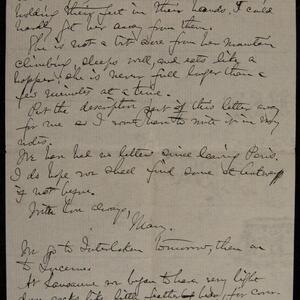 holding their feet in their hands, I could
hardly get her away from them.
She is not a bit sore from her mountain
climbing, sleeps well, and eats like a
hopper; she is never full longer than a
few minutes at a time.
Put the descriptive part of this letter away
for me as I won't have to write it in my
notes.
We have had no letters since leaving Paris.
I do hope we shall find some at Interlaken
if not before.
With love always,
Mary.
We go to Interlaken tomorrow, then on
to Lucerne.
At Lausanne we began to have very light
down like little feather beds for